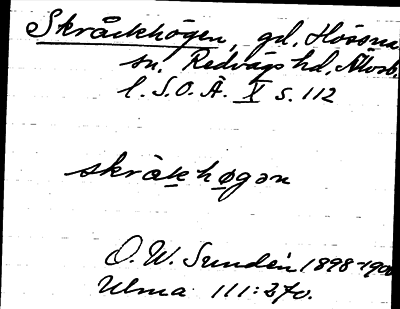 Skråckhögen, gd, Hössna
sn, Redvägs hd, Älvsb.
l. S.O.Ä. X s. 112
skråkhøgən
O.W. Sundén 1898-1900
Ulma 111:370.